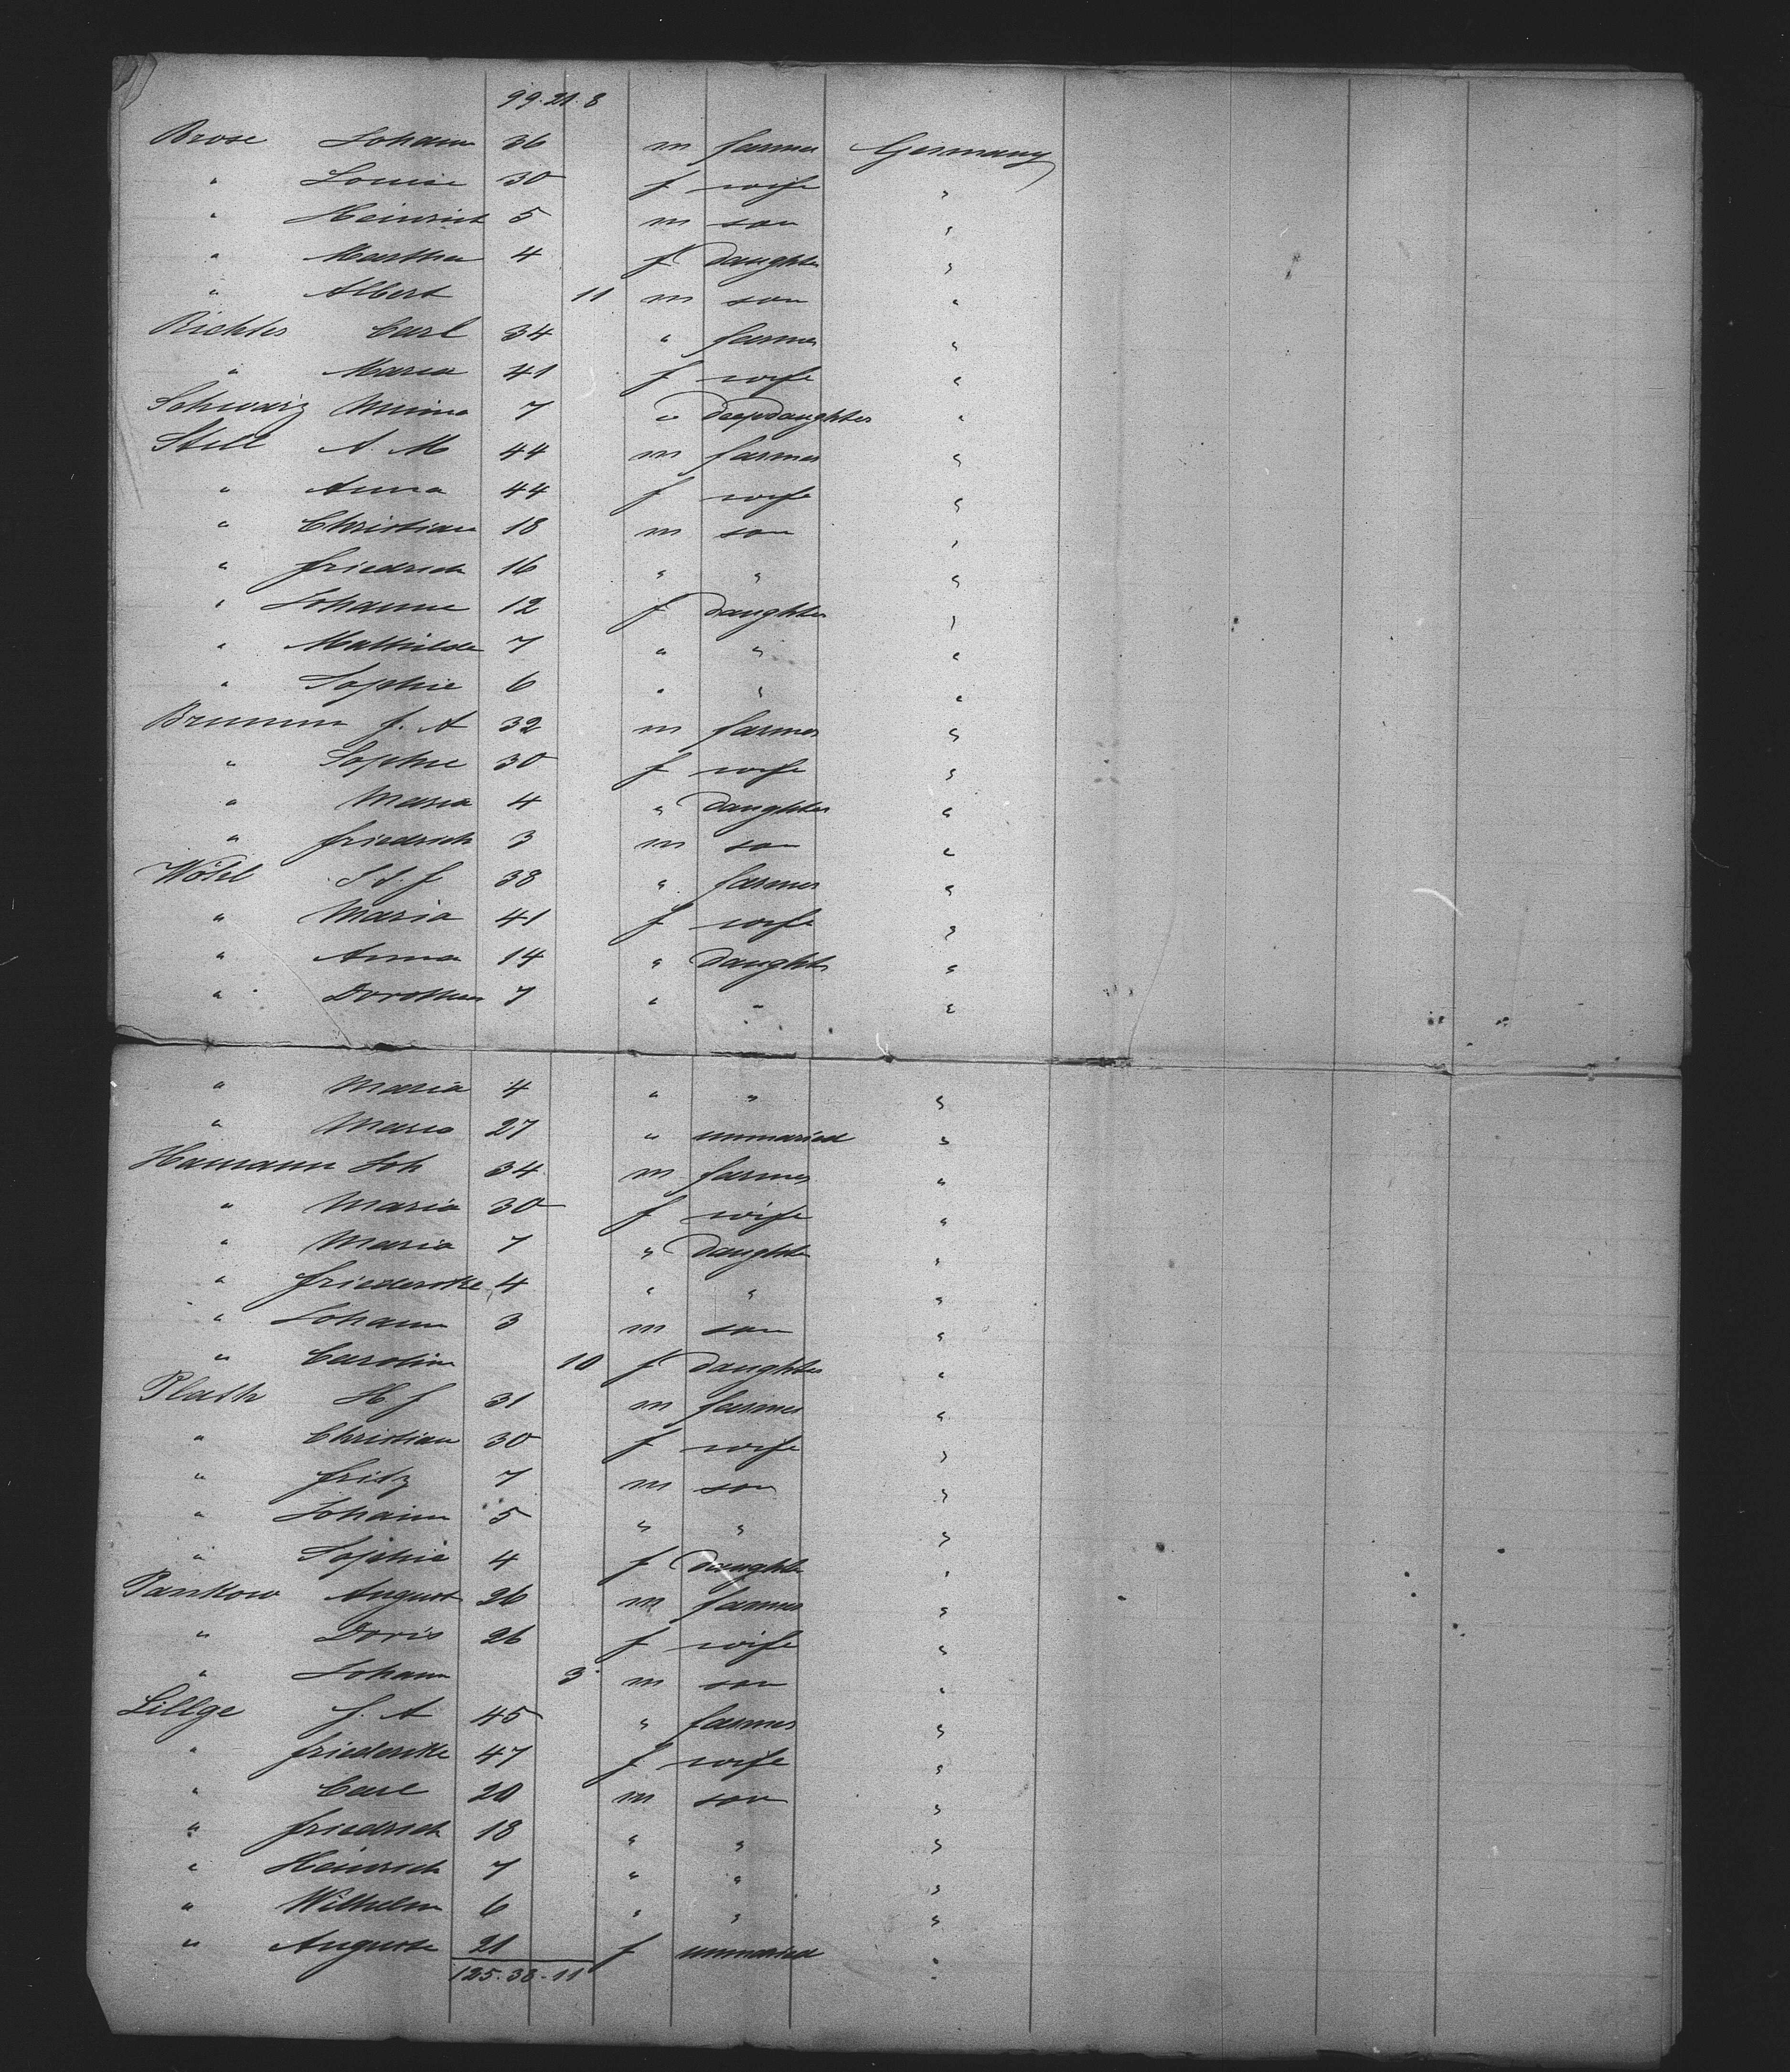 99. 21. 8
Brose Johann 36 m farmer Germany
" Louise 30 f wife "
" Heinrich 5 m son "
" Martha 4 f daughter "
" Albert 11 m son "
Richter Carl 34 " farmer "
" Maria 41 f wife "
Schwarz Minna 7 " "
Still A. M 44 m farmer "
" Anna 44 f wife "
" Christian 18 m son "
" Friedrich 16 " " "
" Johanne 12 f daughter "
" Mathilde 7 " " "
" Sophie 6 " " "
Brumm f. A 32 m farmer "
" Sophie 30 f wife "
" Maria 4 " daughter "
" Friedrich 3 m son "
Wöhl J. J. f 38 " farmer "
" Maria 41 f wife "
" Anna 14 " daughter "
" Dorothea 7 " " "
" Maria 4 " " "
" Maria 27 " unmaried "
Hamann Joh 34 m farmer "
" Maria 30 f wife "
" Maria 7 " daughter "
" Friederike 4 " " "
" Johann 3 m son "
" Carolin 10 f daughter "
Plath H f 31 m farmer "
" Christian 30 f wife "
" Fritz 7 m son "
" Johann 5 " " "
" Sophie 4 f daughter "
Pankow August 26 m farmer "
" Doris 26 f wife "
" Johann 3 m son "
Lillge f. A 45 " farmer "
" Friederike 47 f wife "
" Carl 20 m son "
" Friedrich 18 " " "
" Heinrich 7 " " "
" Wilhelm 6 " " "
" Auguste 21 f unmaried "
125. 38. 11